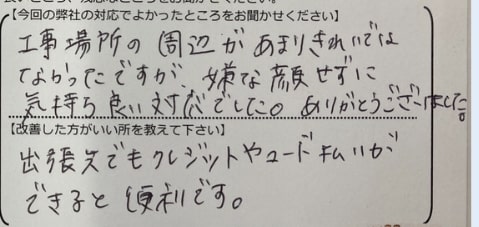 【今回の弊社の対応でよかったところをお聞かせください】
工事場所の周辺があまりきれいでは
なかったですが、嫌な顔せずに
気持ち良い対応でした。ありがとうございました。
【改善した方がいい所を教えて下さい】
出張先でもクレジットやコード払いが
できると便利です。